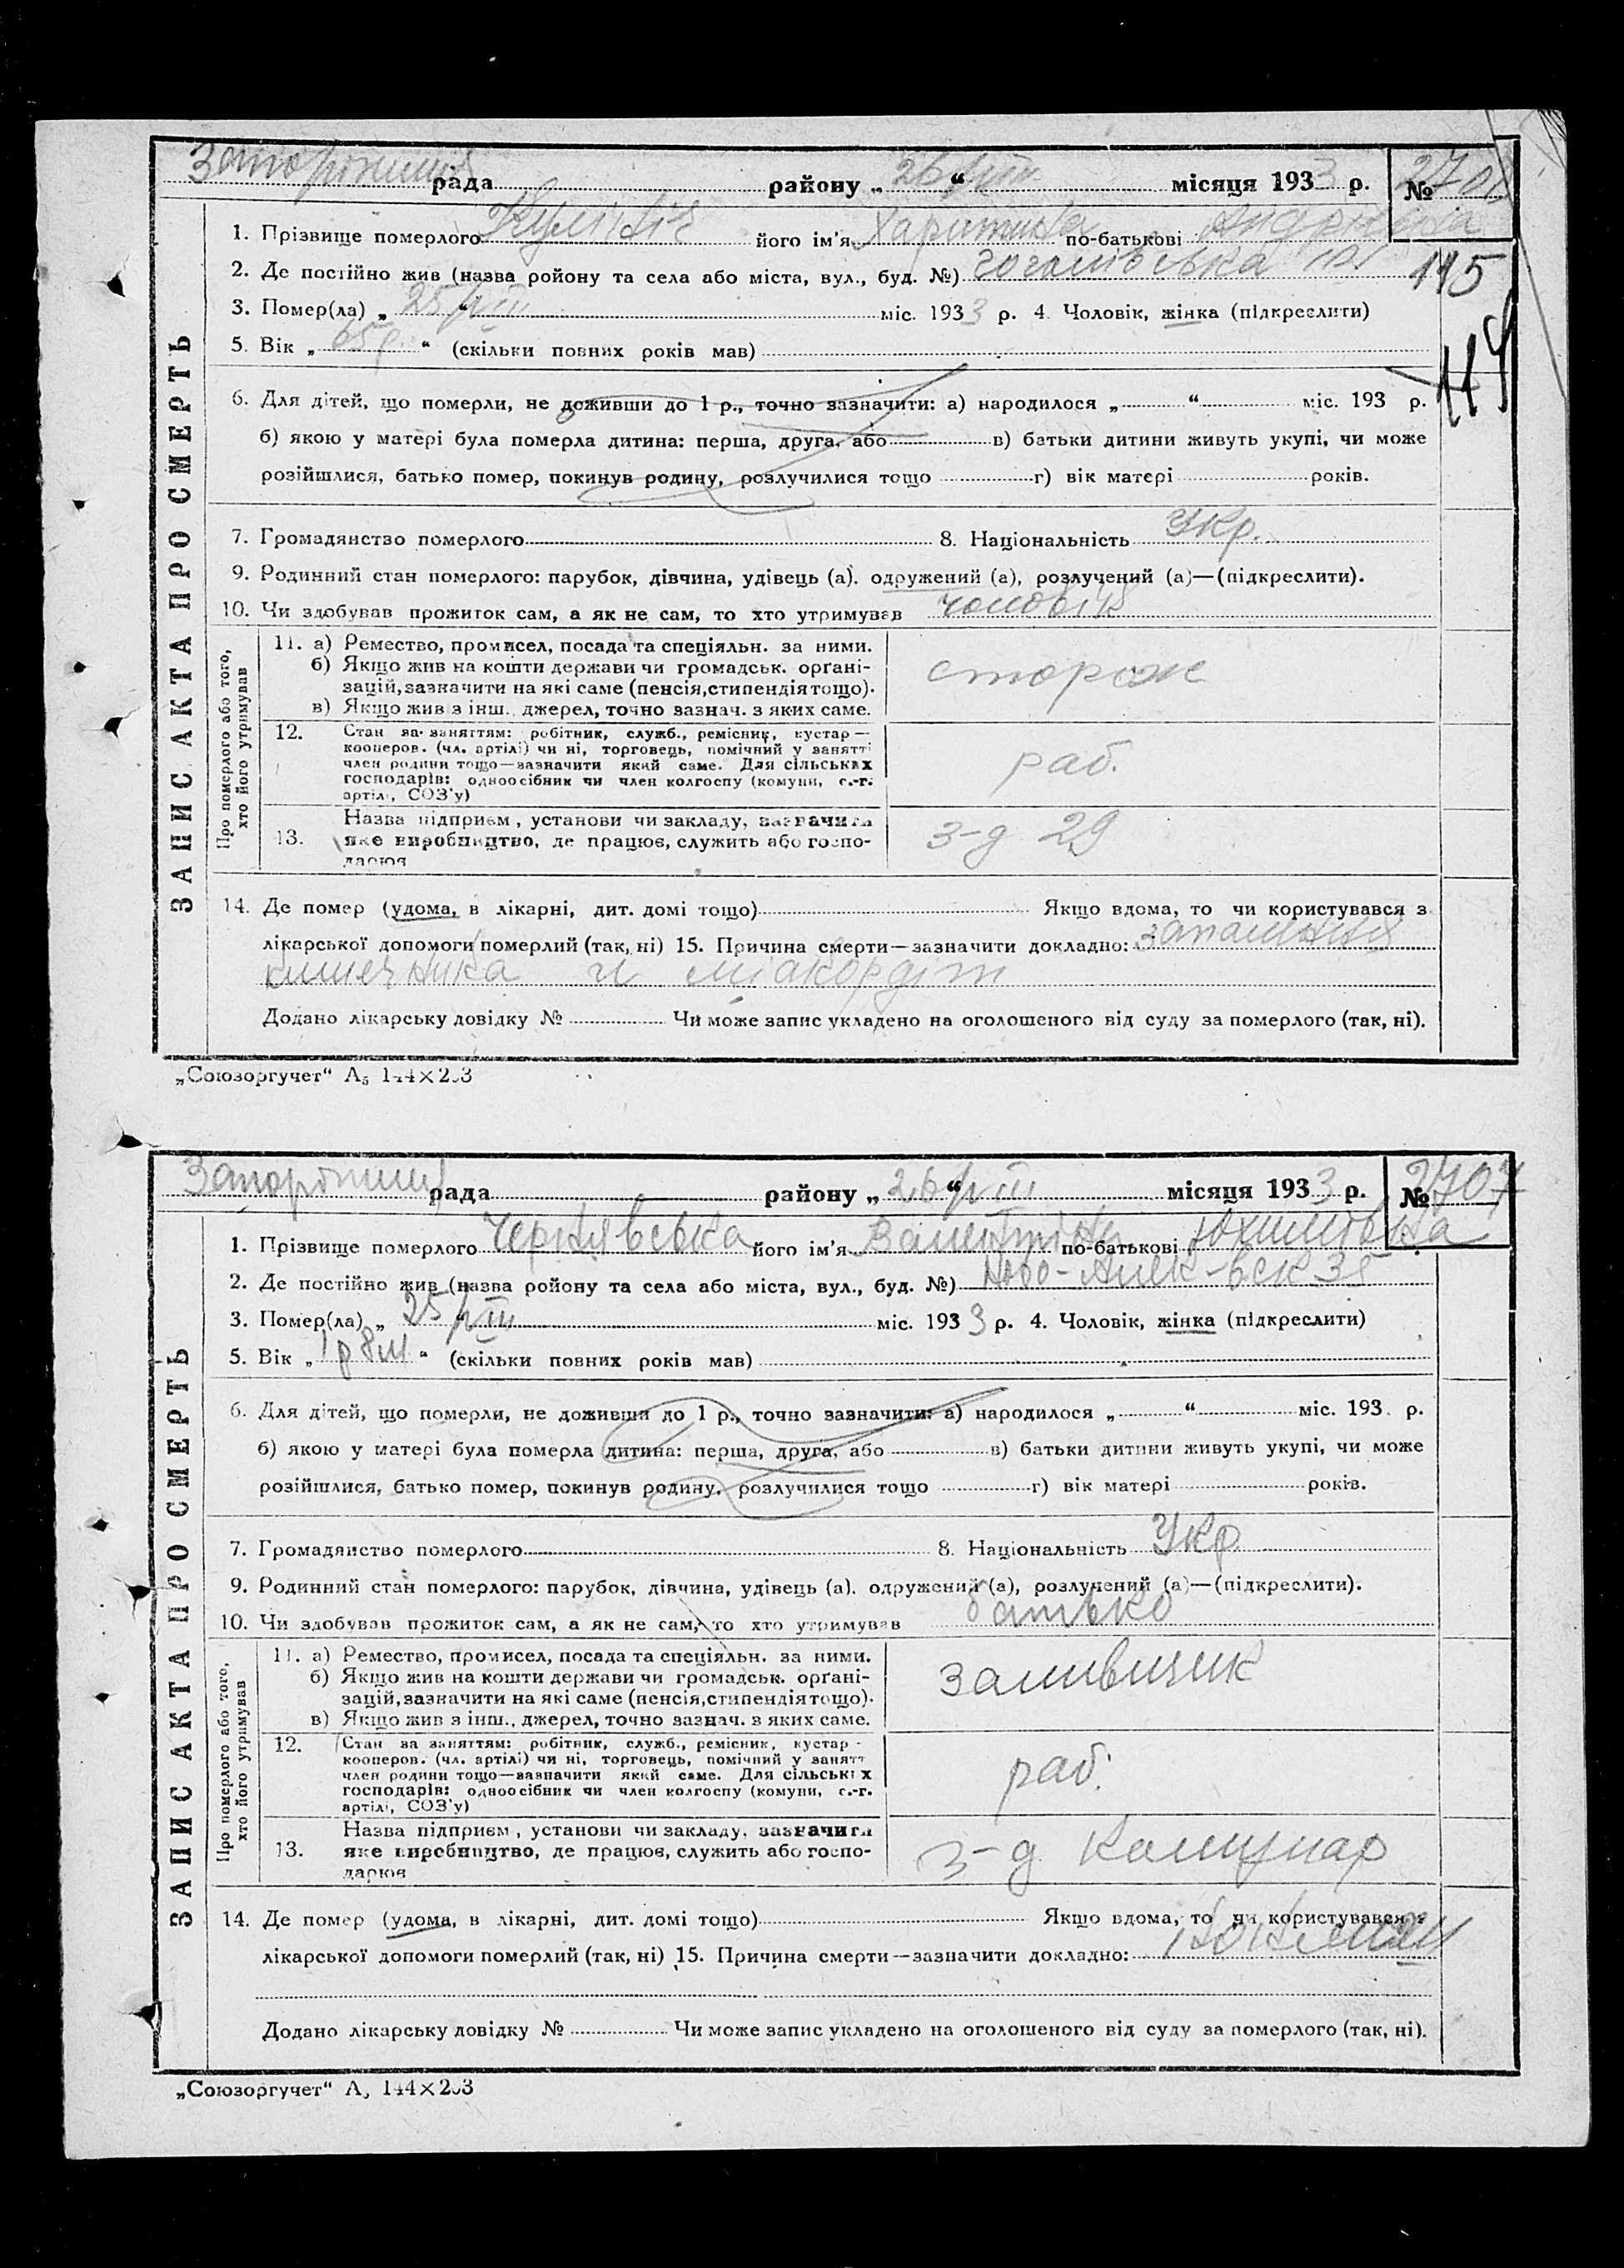 рада району „ 26 “ місяця 1933 р. №
1. Прізвище померлого його ім'я Харитина по-батькові
2. Де постійно жив (назва ройону та села або міста, вул., буд. №) 115
3. Помер(ла) „ 25 “ VIII міс. 1933 р. 4. Чоловік, жінка (підкреслити)
5. Вік „ 65 р. “ (скільки повних років мав)
6. Для дітей, що померли, не доживши до 1 р., точно зазначити: а) народилося „ “ міс. 193 р.
б) якою у матері була померла дитина: перша, друга, або в) батьки дитини живуть укупі, чи може
розійшлися, батько помер, покинув родину, розлучилися тощо г) вік матері років.
7. Громадянство померлого 8. Національність Укр.
9. Родинний стан померлого: парубок, дівчина, удівець (а). одружений (а), розлучений (а)—(підкреслити).
10. Чи здобував прожиток сам, а як не сам, то хто утримував чоловік
ЗАПИС АКТА ПРО СМЕРТЬ
Про померлого або того, хто його утримував
11. а) Ремество, промисел, посада та спеціяльн. за ними.
б) Якщо жив на кошти держави чи громадськ. орґані-
зацій, зазначити на які саме (пенсія, стипендія тощо).
в) Якщо жив з інш. джерел, точно зазнач. з яких саме.
сторож
12. Стан за заняттям: робітник, служб., ремісник, кустар—
кооперов. (чл. артілі) чи ні, торговець, помічний у занятті
член родини тощо—зазначити який саме. Для сільських
господарів: одноосібник чи член колгоспу (комуни, с.-г.
артілі, СОЗ'у)
раб.
13. Назва підприєм, установи чи закладу, зазначити
яке виробництво, де працює, служить або госпо-
дарює
з-д 29
14. Де помер (удома, в лікарні, дит. домі тощо) Якщо вдома, то чи користувався з
лікарської допомоги померлий (так, ні) 15. Причина смерти—зазначити докладно: запалення
кишечника и міакордіт
Додано лікарську довідку № Чи може запис укладено на оголошеного від суду за померлого (так, ні).
„Союзоргучет“ А5 144×203
рада району „ 26 “ VIII місяця 1933 р. № 2707
1. Прізвище померлого Чернявська його ім'я Валентина по-батькові Юхимівна
2. Де постійно жив (назва ройону та села або міста, вул., буд. №) 35
3. Помер(ла) „ 25 “ VIII міс. 1933 р. 4. Чоловік, жінка (підкреслити)
5. Вік „ 1 р 8 м “ (скільки повних років мав)
6. Для дітей, що померли, не доживши до 1 р., точно зазначити: а) народилося „ “ міс. 193 р.
б) якою у матері була померла дитина: перша, друга, або в) батьки дитини живуть укупі, чи може
розійшлися, батько помер, покинув родину, розлучилися тощо г) вік матері років.
7. Громадянство померлого 8. Національність Укр.
9. Родинний стан померлого: парубок, дівчина, удівець (а). одружений (а), розлучений (а)—(підкреслити).
10. Чи здобував прожиток сам, а як не сам, то хто утримував батько
ЗАПИС АКТА ПРО СМЕРТЬ
Про померлого або того, хто його утримував
11. а) Ремество, промисел, посада та спеціяльн. за ними.
б) Якщо жив на кошти держави чи громадськ. орґані-
зацій, зазначити на які саме (пенсія, стипендія тощо).
в) Якщо жив з інш., джерел, точно зазнач. з яких саме.
заливщик
12. Стан за заняттям: робітник, служб., ремісник, кустар-
кооперов. (чл. артілі) чи ні, торговець, помічний у занятт
член родини тощо—зазначити який саме. Для сільських
господарів: одноосібник чи член колгоспу (комуни, с.-г.
артілі, СОЗ'у)
раб.
13. Назва підприєм, установи чи закладу, зазначити
яке виробництво, де працює, служить або госпо-
дарює
з-д Комунар
14. Де помер (удома, в лікарні, дит. домі тощо) Якщо вдома, то чи користувався з
лікарської допомоги померлий (так, ні) 15. Причина смерти—зазначити докладно:
Додано лікарську довідку № Чи може запис укладено на оголошеного від суду за померлого (так, ні).
„Союзоргучет“ А5 144×203